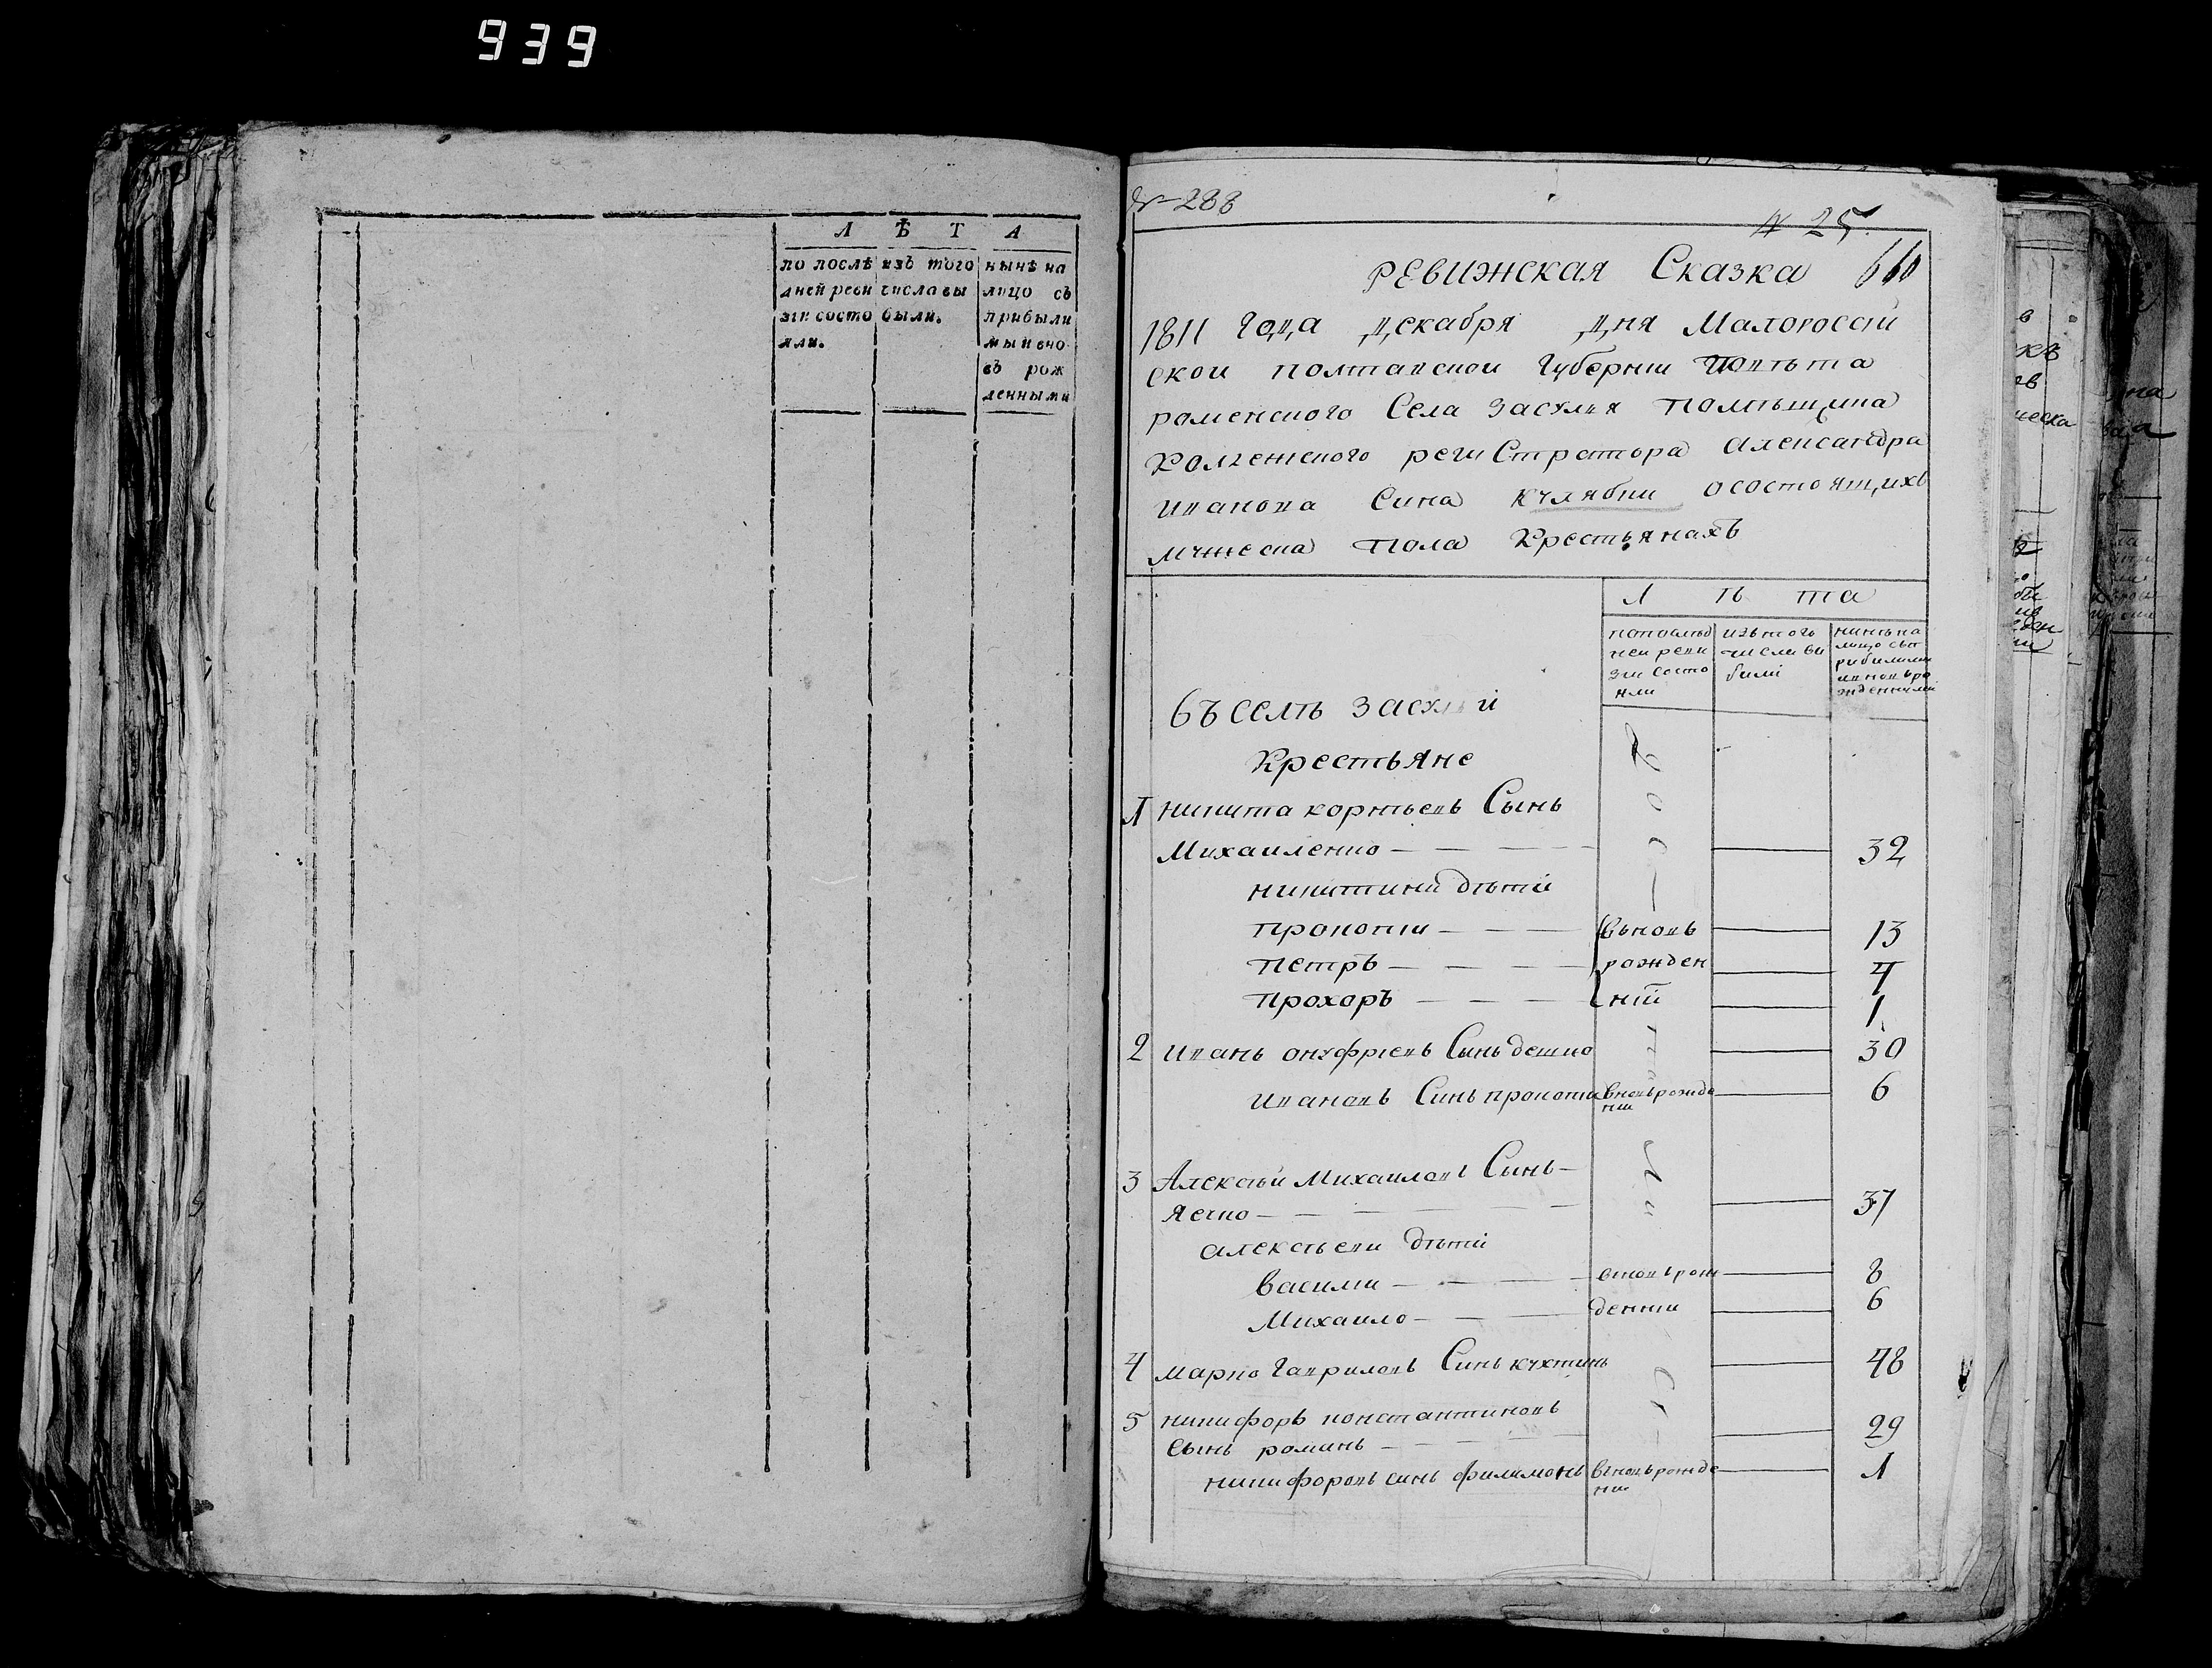 939
Л Ѣ Т А
по послѣ
дней реви
зіи состо
яли.
изъ того
числа вы
были.
нынѣ на
лицо съ
прибыли
ми и вно
въ рож
денными
№ 288
№ 25.
660
Ревижская Сказка
1811 года декабря дня Малоросій
ской полтавской Губерніи Повѣта
роменского Села Засулья Помѣщика
Коллежского региСтратора Александра
Иванова Сина Кулябки осостоящихъ
мужеска Пола Крестьянахъ
Л ѣ та
попослѣд
ней реви
зіи состо
яли
изьтого
числа ви
були
нинѣ на
лицо съп
рибилими
ивновьро
жденними
Въ селѣ Засульи
Крестьяне
1 никита корнѣевь Сынь
Михаиленко — — — 32
никитини дѣти
Прокопіи — — — вьновь 13
Петръ — — — рожден 4
Прохоръ — — — ній 1
2 Ивань онуфріевь Сынь дешко 30
Ивановь Синь прокопій вновьрожде 6
ніи
3 Алексѣй Михаиловь Сынь —
Ясчко — — — 37
алексѣеви дѣти
Василіи — — — вновьрож 8
Михаило — — — денніи 6
4 марко Гавриловь Синь кухтинь 48
5 никифорь константиновь
Сынь романь — — — 29
никифоровь синь филимонь вьновьрожде 1
ніи